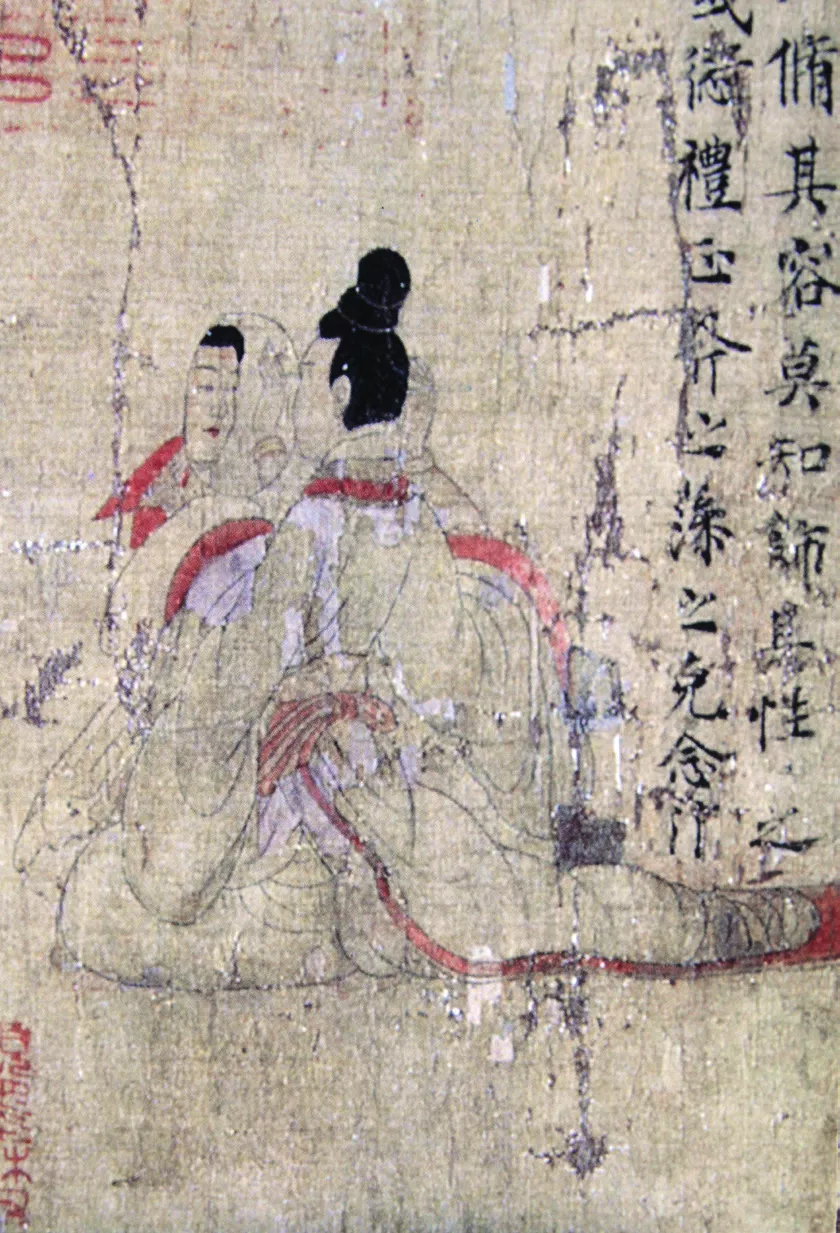 脩其容莫知飾其性之
或愆禮正斧之藻之克念作